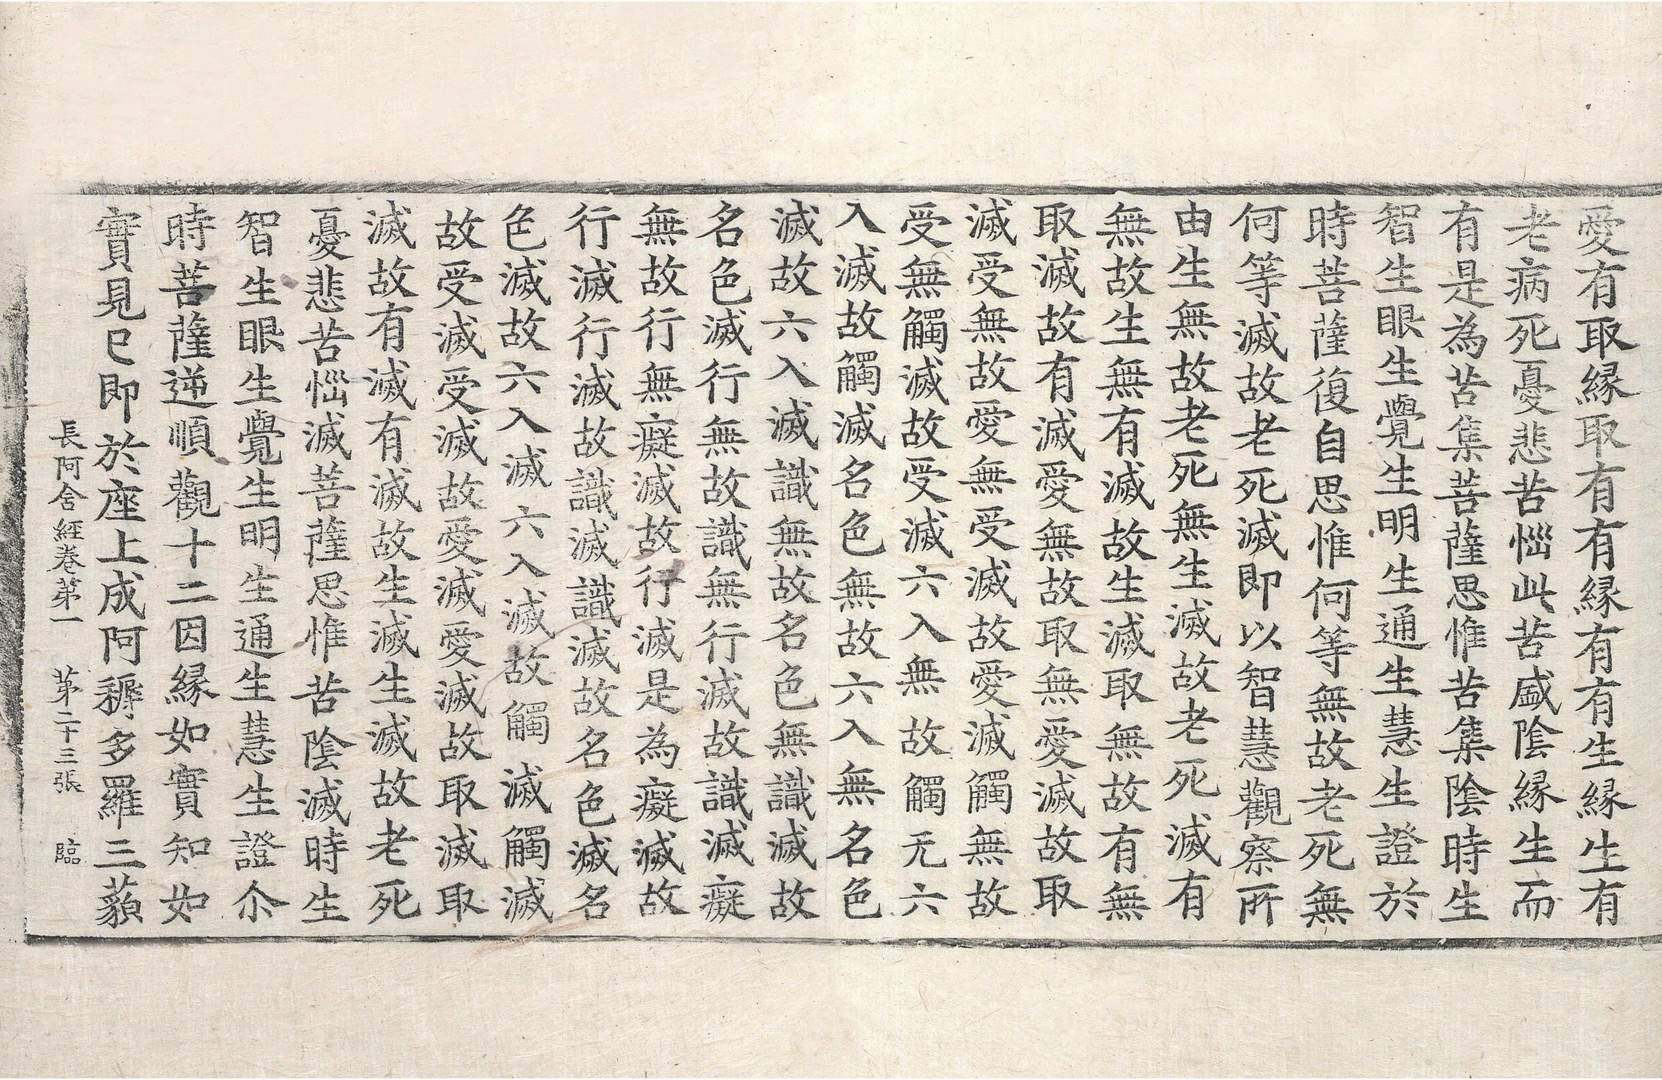 愛有取縁取有有縁有有生縁生有
老病死憂悲苦惱此苦盛陰縁生而
有是為苦集菩薩思惟苦集陰時生
智生眼生覺生明生通生慧生證於
時菩薩復自思惟何等無故老死無
何等滅故老死滅即以智慧觀察所
由生無故老死無生滅故老死滅有
無故生無有滅故生滅取無故有無
取滅故有滅愛無故取無愛滅故取
滅受無故愛無受滅故愛滅觸無故
受無觸滅故受滅六入無故觸无六
入滅故觸滅名色無故六入無名色
滅故六入滅識無故名色無識滅故
名色滅行無故識無行滅故識滅癡
無故行無癡滅故行滅是為癡滅故
行滅行滅故識滅識滅故名色滅名
色滅故六入滅六入滅故觸滅觸滅
故受滅受滅故愛滅愛滅故取滅取
滅故有滅有滅故生滅生滅故老死
憂悲苦惱滅菩薩思惟苦陰滅時生
智生眼生覺生明生通生慧生證尒
時菩薩逆順觀十二因縁如實知如
實見已即於座上成阿耨多羅三藐
長阿含經卷第一 第二十三張 臨